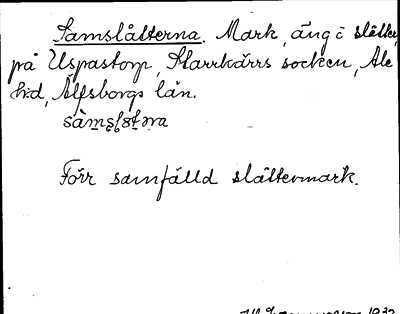 Samslåtterna. Mark, äng i slåtter,
på Uspastorp, Starrkärrs socken, Ale
hd, Älfsborgs län.
Förr samfälld slåttermark.
1932